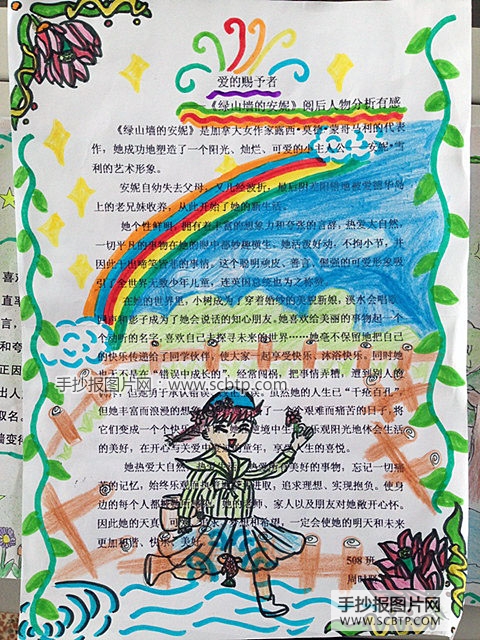 爱的赐予者
——《绿山墙的安妮》阅后人物分析有感
《绿山墙的安妮》是加拿大女作家露西·莫德·蒙哥马利的代表
作，她成功地塑造了一个阳光、灿烂、可爱的小主人公——安妮·雪
利的艺术形象。
安妮自幼失去父母，又几经波折，最后阴差阳错地被爱德华岛
上的老兄妹收养，从此开始了她的新生活。
她个性鲜明，拥有着丰富的想象力和夸张的言辞，热爱大自然，
一切平凡的事物在她的眼中都妙趣横生，她活泼好动，不拘小节，并
因此干出啼笑皆非的事情。这个聪明顽皮、善言、倔强的可爱形象吸
引了全世界无数少年儿童，连英国总统也为之称赞。
在她的世界里，小树成为了穿着纱纹的美貌新娘，溪水会唱歌，
回声和影子成为了她会说话的知心朋友。她喜欢给美丽的事物起一个
个动听的名字，喜欢自己去探寻未来的世界……她毫不保留地把自己
的快乐传递给了同学伙伴，使大家一起享受快乐、沐浴快乐。同时她
也无不是在“错误中成长的”，经常闯祸，把事情弄糟，遭到别人的
，但她勇于承认错误 虽然她的人生已“千疮百孔”，
但她丰富而浪漫的想 了一个个艰难而痛苦的日子，将
它们变成一个个快 她 途中 乐观阳光地体会生活
的美好，在开心与关爱中 童年，享受人生的喜悦。
她热爱大自然，热爱生活，热爱所有美好的事物，忘记一切痛
苦的记忆，始终乐观 进取，追求理想、实现抱负。使身
边的每个人都 她的老师、家人以及朋友对她敞开心怀。
因此她的天真、可 梦想和希望，一定会使她的明天和未来
更加和谐、快乐、美好。
508 班
周时
手抄报图片网
www.scbtp.com
手抄报图片网
WWW.SCBTP.COM